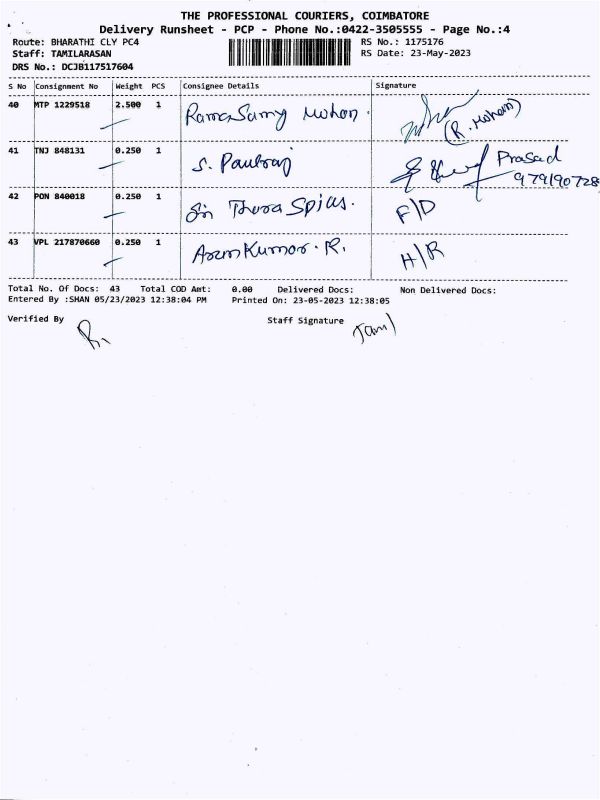 THE PROFESSIONAL COURIERS, COIMBATORE
Delivery Runsheet - PCP - Phone No.:0422-3505555 - Page No.:4
Route: BHARATHI CLY PC4 RS No.: 1175176
Staff: TAMILARASAN RS Date: 23-May-2023
DRS No.: DCJB117517604
S No Consignment No Weight PCS Consignee Details Signature
40 MTP 1229518 2.500 1 RamaSamy Mohan. (R. Mohan)
41 TNJ 848131 0.250 1 S. Paulraj Prasad
979190728
42 PON 840018 0.250 1 Sri Thura Spices. F/D
43 VPL 217870660 0.250 1 ArunKumar. R. H/R
Total No. Of Docs: 43 Total COD Amt: 0.00 Delivered Docs: Non Delivered Docs:
Entered By :SHAN 05/23/2023 12:38:04 PM Printed On: 23-05-2023 12:38:05
Verified By Staff Signature Tamil